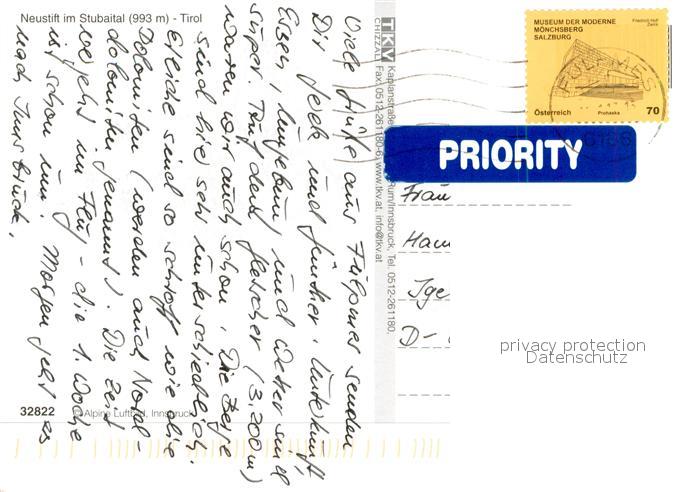 Neustift im Stubaital (993 m) - Tirol
Viele Grüße aus Fulpmes senden
Dir Heide und Günther. Unterkunft,
Essen, Umgebung und Wetter sind
super. Auf dem Gletscher (3.200 m)
waren wir auch schon. Die Berge
sind hier sehr unterschiedlich.
Etliche sind so schroff wie die
Dolomiten (werden auch Nord-
dolomiten genannt). Die Zeit
vergeht im Flug - die 1. Woche
ist schon um. Morgen geht es
nach Innsbruck.
32822 © Alpine Luftbild, Innsbruck
TKV Kaplanstraße Rum/Innsbruck, Tel. 0512-261180,
CHIZZALI Fax 0512-261180-6, www.tkv.at, info@tkv.at
MUSEUM DER MODERNE
MÖNCHSBERG
SALZBURG
Friedrich Hoff
Zwink
Österreich Prohaska 70
FULPMES
6166
PRIORITY
Frau
Ham
Ige
D-
privacy protection
Datenschutz